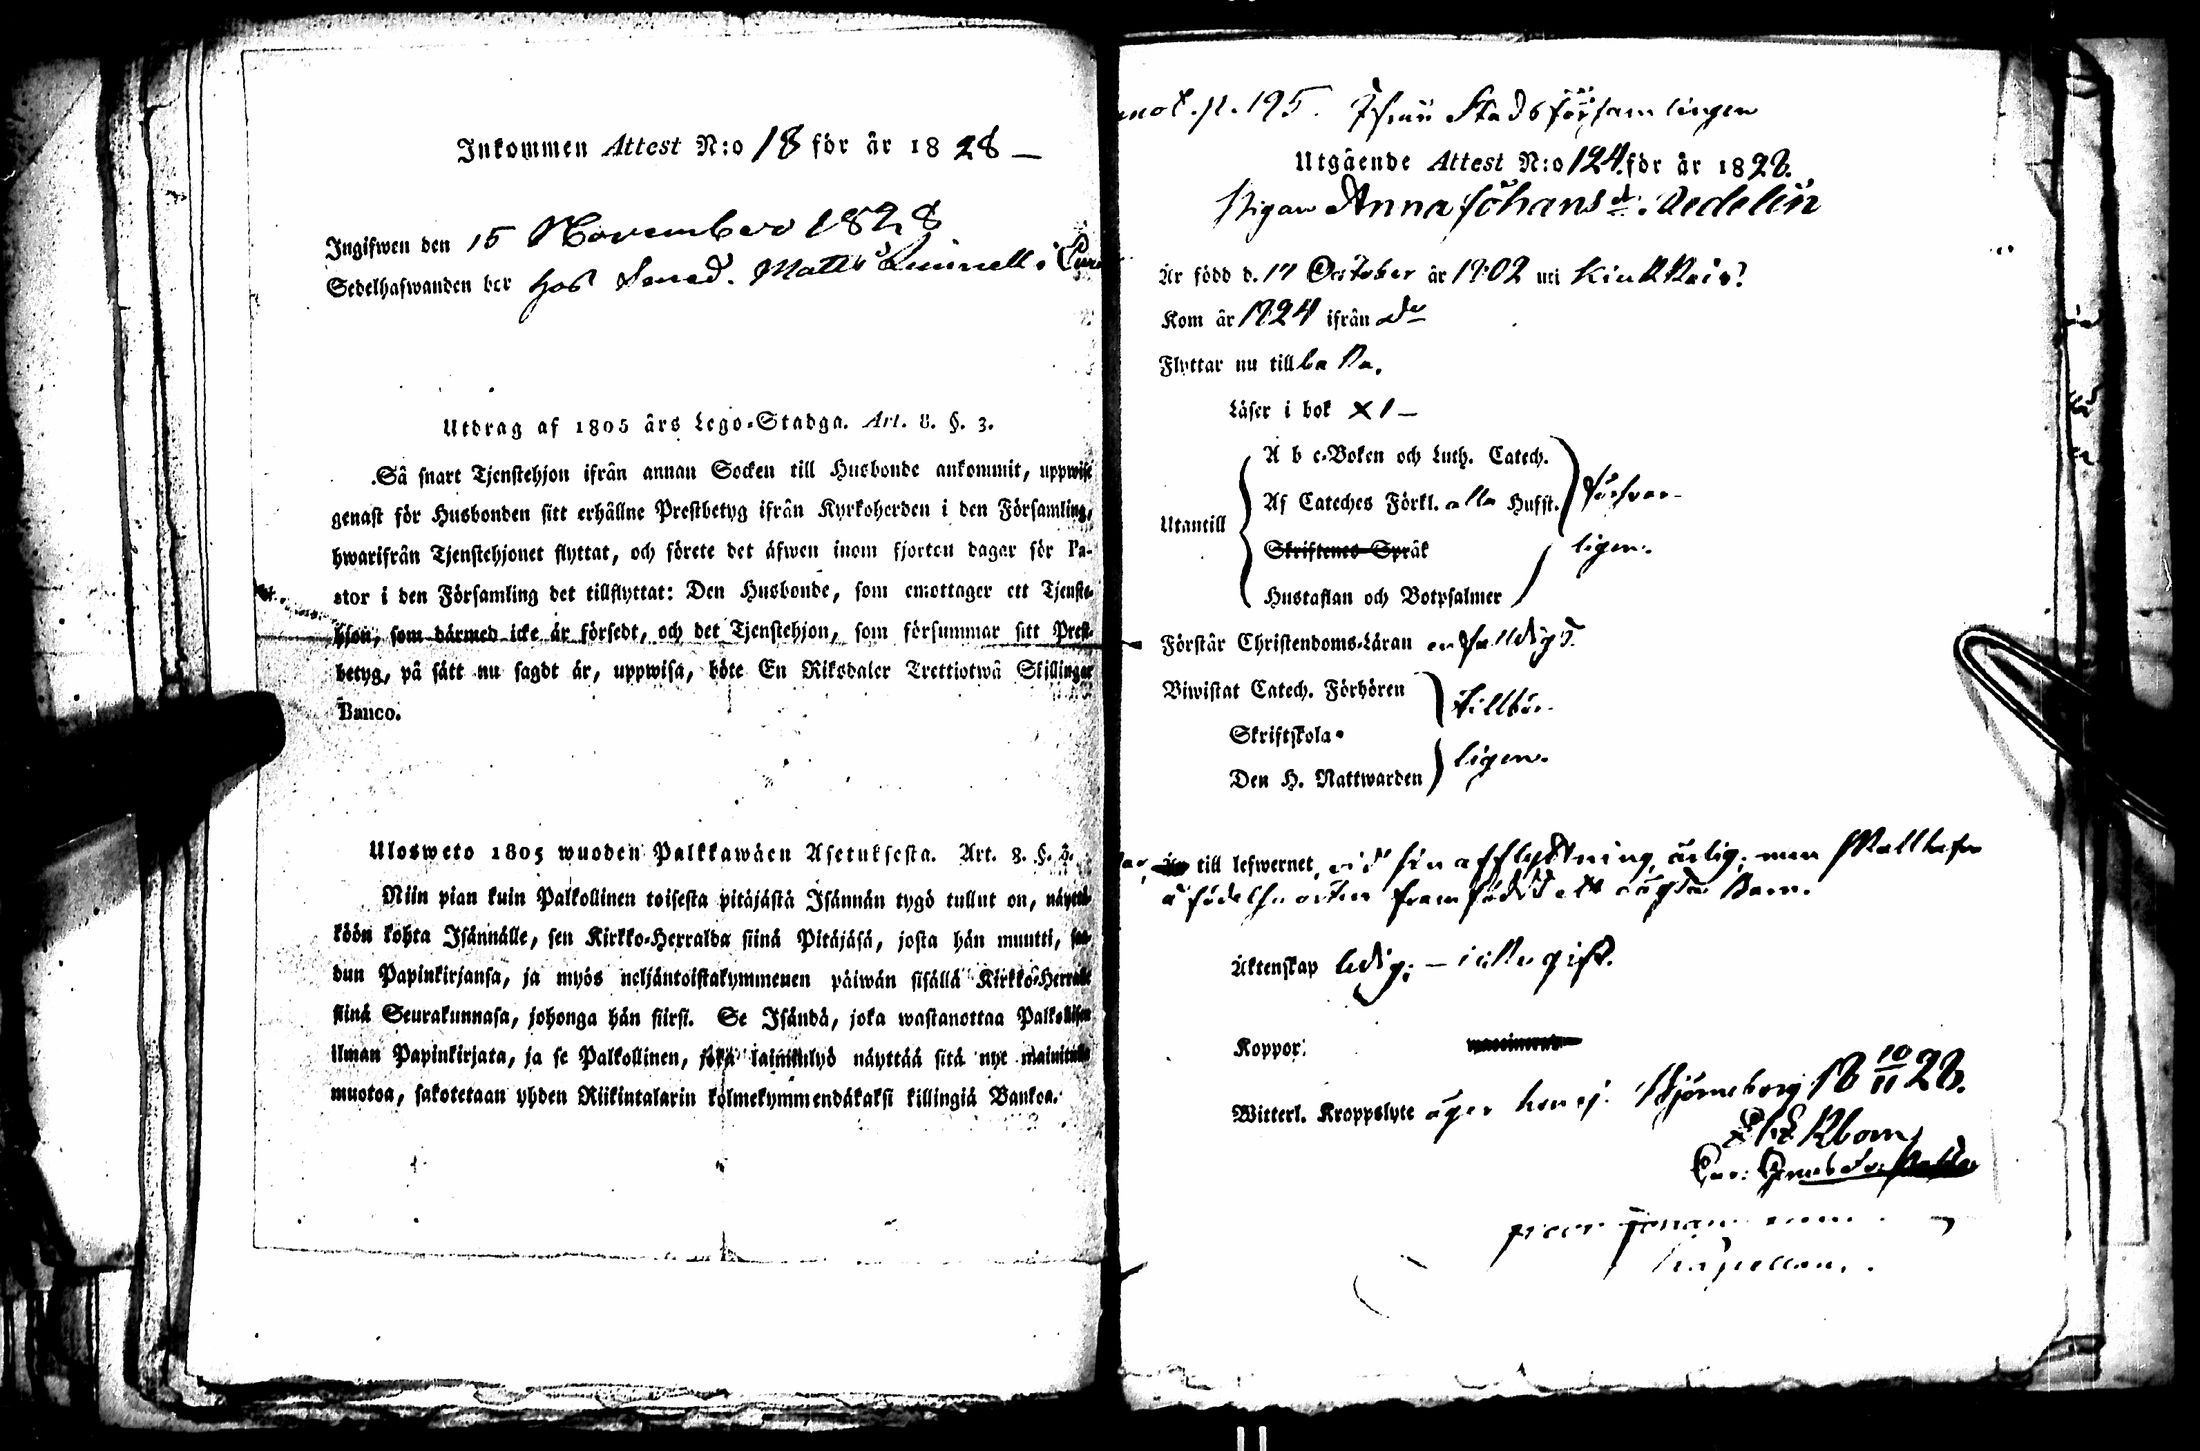 Inkommen Attest N:o 18 för år 1828 —
Ingifwen den 15 November 1828
Sedelhafwanden bor hos Smed. Matts
Utdrag af 1805 års Lego-Stadga. Art. 8. §. 3.
Så snart Tjenstehjon ifrån annan Socken till Husbonde ankommit, uppwise
genast för Husbonden sitt erhållne Prestbetyg ifrån Kyrkoherden i den Församling,
hwarifrån Tjenstehjonet flyttat, och förete det äfwen inom fjorton dagar för Pa-
stor i den Församling det tillflyttat: Den Husbonde, som emottager ett Tjenste-
hjon, som därmed icke är försedt, och det Tjenstehjon, som försummar sitt Prest-
betyg, på sätt nu sagdt är, uppwisa, böte En Riksdaler Trettiotwå Skillingar
Banco.
Ulosweto 1805 wuoden Palkkawäen Asetuksesta. Art. 8. §. 3.
Niin pian kuin Palkollinen toisesta pitäjästä Isännän tygö tullut on, näyttä-
köön kohta Isännälle, sen Kirkko-Herralda siinä Pitäjäsä, josta hän muutti, saa-
dun Papinkirjansa, ja myös neljäntoistakymmenen päiwän sisällä Kirkko-Herralle
siinä Seurakunnasa, johonga hän siirsi. Se Isändä, joka wastanottaa Palkollisen
ilman Papinkirjata, ja se Palkollinen, joka laiminlyö näyttää sitä nyt mainitulla
muotoa, sakotetaan yhden Riikintalarin kolmekymmendäkaksi killingiä Bankoa.
p. 195. Ifrån Stadsförsamlingen
Utgående Attest N:o 124 för år 1828.
Pigan Anna Johansdr. Vedelin
Är född d. 17 October år 1802 uti
Kom år 1824 ifrån do
Flyttar nu tillbaka.
Läser i bok x 1 —
A b c-Boken och Luth. Catech.
Af Cateches Förkl. alla Hufst. försvar-
Utantill
Skriftenes Språk ligen.
Hustaflan och Botpsalmer
Förstår Christendoms-Läran enfaldigt.
Biwistat Catech. Förhören tillbör-
Skriftskola
Den H. Nattwarden ligen.
till lefwernet, vid sin afflyttning ärlig; men skall hafva
å födelse orten framfödt ett oägta barn.
Äktenskap ledig; — icke gift.
Koppor:
Witterl. Kroppslyte äger hon ej. Björneborg 18 10/11 28.